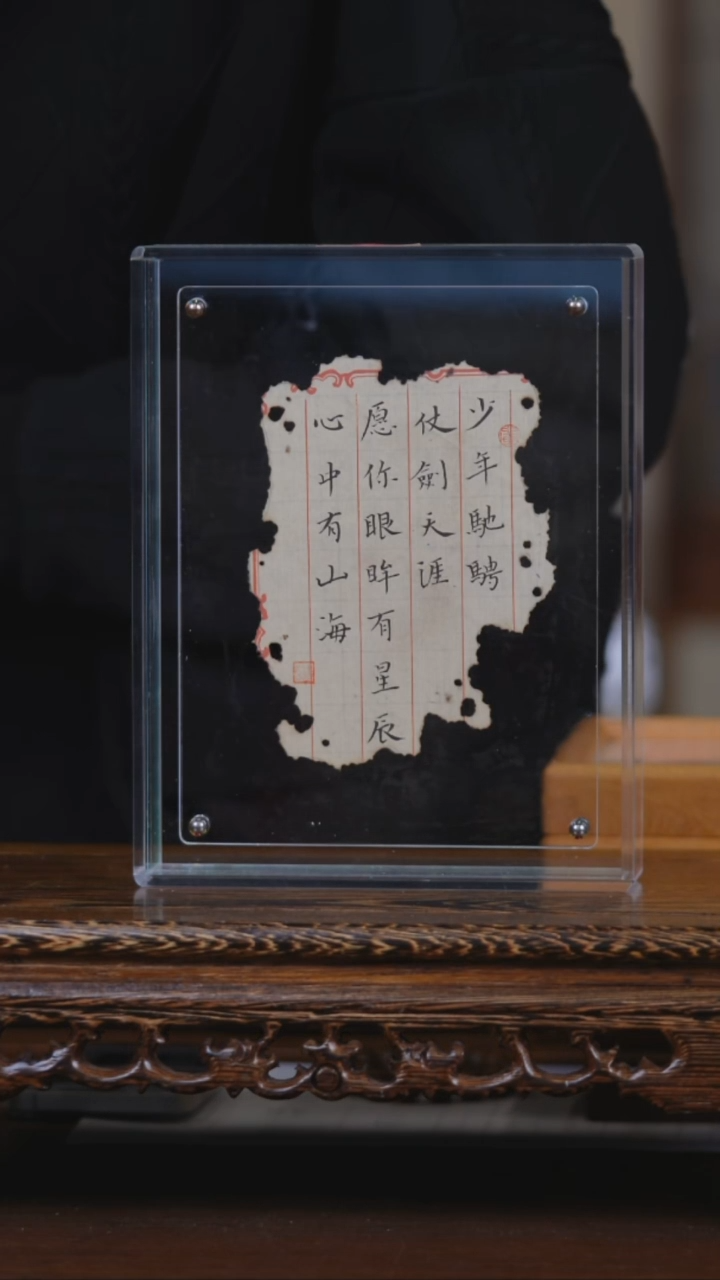 少年馳騁
仗劍天涯
愿你眼眸有星辰
心中有山海